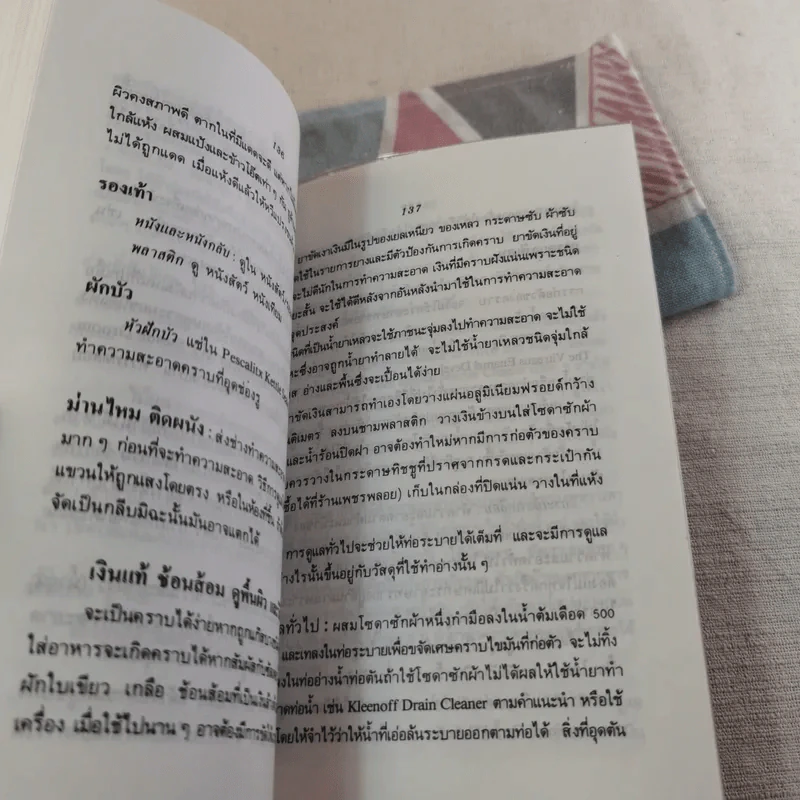 136
ผิวคงสภาพดี ตากในที่มีแดดจะดี
ใกล้แห้ง ผสมแป้งและข้าวโอ๊ตเท่า ๆ กัน
ไม่ได้ถูกแดด เมื่อแห้งดีแล้วให้
รองเท้า
หนังและหนังกลับ : ดูใน หนังสัตว์
พลาสติก ดู หนังสัตว์ หนังเทียม
ฝักบัว
หัวฝักบัว แช่ใน Pescalix Kettle
ทำความสะอาดคราบที่อุดช่องรู
ม่านไหม ติดผนัง : ส่งช่างทำความ
มาก ๆ ก่อนที่จะทำความสะอาด วิธีการ
แขวนให้ถูกแสงโดยตรง หรือในห้องที่ชื้น
จัดเป็นกลีบมิฉะนั้นมันอาจแตกได้
เงินแท้ ช้อนส้อม ดูพื้นผิว
จะเป็นคราบได้ง่ายหากถูก
ใส่อาหารจะเกิดคราบได้หากสัมผัสกับ
ผักใบเขียว เกลือ ช้อนส้อมที่เป็น
เครื่อง เมื่อใช้ไปนาน ๆ อาจต้องมีการ
137
ยาขัดเงาเงินมีในรูปของเยลเหนียว ของเหลว กระดาษซับ ผ้าซับ
ใช้ในรายการยางและมีตัวป้องกันการเกิดคราบ ยาขัดเงินที่อยู่
จะไม่ดีนักในการทำความสะอาด เงินที่มีคราบฝังแน่นเพราะชนิด
ยะสั้น จะใช้ได้ดีหลังจากอันหลังนำมาใช้ในการทำความสะอาด
ดประสงค์
นิดที่เป็นน้ำยาเหลวจะใช้ภาชนะจุ่มลงไปทำความสะอาด จะไม่ใช้
ะซึ่งอาจถูกน้ำยาทำลายได้ จะไม่ใช้น้ำยาเหลวชนิดจุ่มใกล้
ส อ่างและพื้นซึ่งจะเปื้อนได้ง่าย
าขัดเงินสามารถทำเองโดยวางแผ่นอลูมิเนียมฟรอยด์กว้าง
นติเมตร ลงบนชามพลาสติก วางเงินข้างบนใส่โซดาซักผ้า
และน้ำร้อนปิดฝา อาจต้องทำใหม่หากมีการก่อตัวของคราบ
ควรวางในกระดาษทิชชูที่ปราศจากกรดและกระเป๋ากัน
ซื้อได้ที่ร้านเพชรพลอย) เก็บในกล่องที่ปิดแน่น วางในที่แห้ง
การดูแลทั่วไปจะช่วยให้ท่อระบายได้เต็มที่ และจะมีการดูแล
างไรนั้นขึ้นอยู่กับวัสดุที่ใช้ทำอ่างนั้น ๆ
ลทั่วไป : ผสมโซดาซักผ้าหนึ่งกำมือลงในน้ำต้มเดือด 500
และเทลงในท่อระบายเพื่อขจัดเศษคราบไขมันที่ก่อตัว จะไม่ทิ้ง
งในท่ออ่างน้ำท่อตันถ้าใช้โซดาซักผ้าไม่ได้ผลให้ใช้น้ำยาทำ
าดท่อน้ำ เช่น Kleenoff Drain Cleaner ตามคำแนะนำ หรือใช้
โดยให้จำไว้ว่าให้น้ำที่เอ่อล้นระบายออกตามท่อได้ สิ่งที่อุดตัน